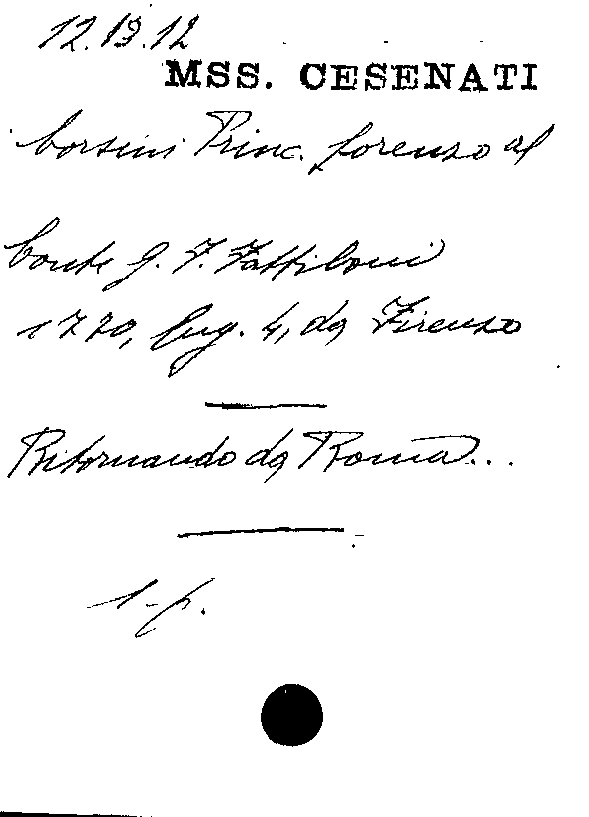 12.13.12
MSS. CESENATI
Corsini Princ. Lorenzo al
Conte G. F. Fattiboni
1720, lug. 4, da Firenze
Ritornando da Roma...
1-p.